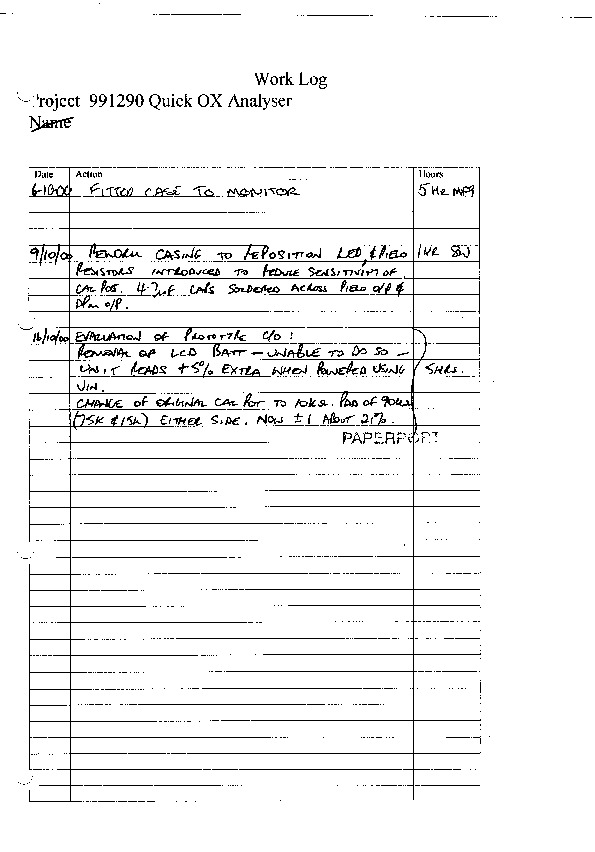 Work Log
Project 991290 Quick OX Analyser
Name
Date Action Hours
6-10-00 FITTED CASE TO MONITOR 5 Hr
9/10/00 CASING TO REPOSITION LED, & 1 HR
RESISTORS INTRODUCED TO REDUCE SENSITIVITY OF
CAL POT. 4.7µF CAPS SOLDERED ACROSS O/P &
DPM O/P.
16/10/00 EVALUATION OF PROTOTYPE C/O :
REMOVAL OF LCD BATT – UNABLE TO DO SO –
UNIT READS +5% EXTRA WHEN POWERED USING 5HRS.
VIN.
CHANGE OF ORIGINAL CAL POT TO 10KΩ. PAD OF 90KΩ
(75K & 15K) EITHER SIDE. NOW ±1 ABOUT 21%.
PAPERPORT